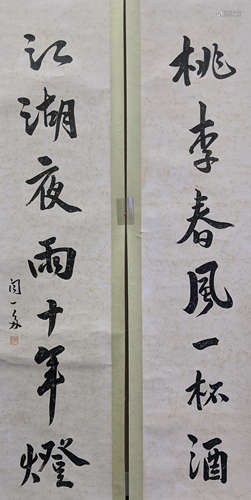 桃李春風一杯酒
江湖夜雨十年燈
聞一多